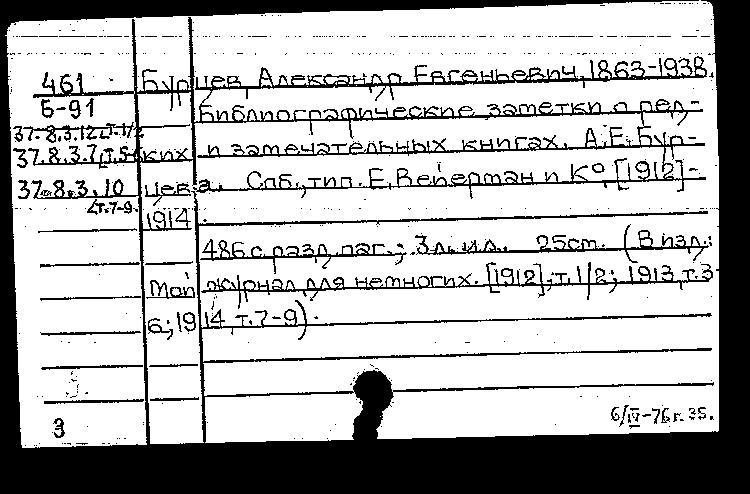 461
Б-91
37.8.3.12 т.1/2
37.8.3.7
37.8.3.10
т.7-9.
Бурцев, Александр Евгеньевич, 1863-1938.
Библиографические заметки о ред-
ких и замечательных книгах. А.Е. Бур-
цева. Спб., тип. Е. Вейерман и К°, [1912]-
1914.
486 с разд. паг.; 3 л. ил. 25см. (В изд.:
Мой журнал для немногих. [1912], т.1/2; 1913, т.3-
6; 1914, т.7-9).
3
6/IV-76г. 35.